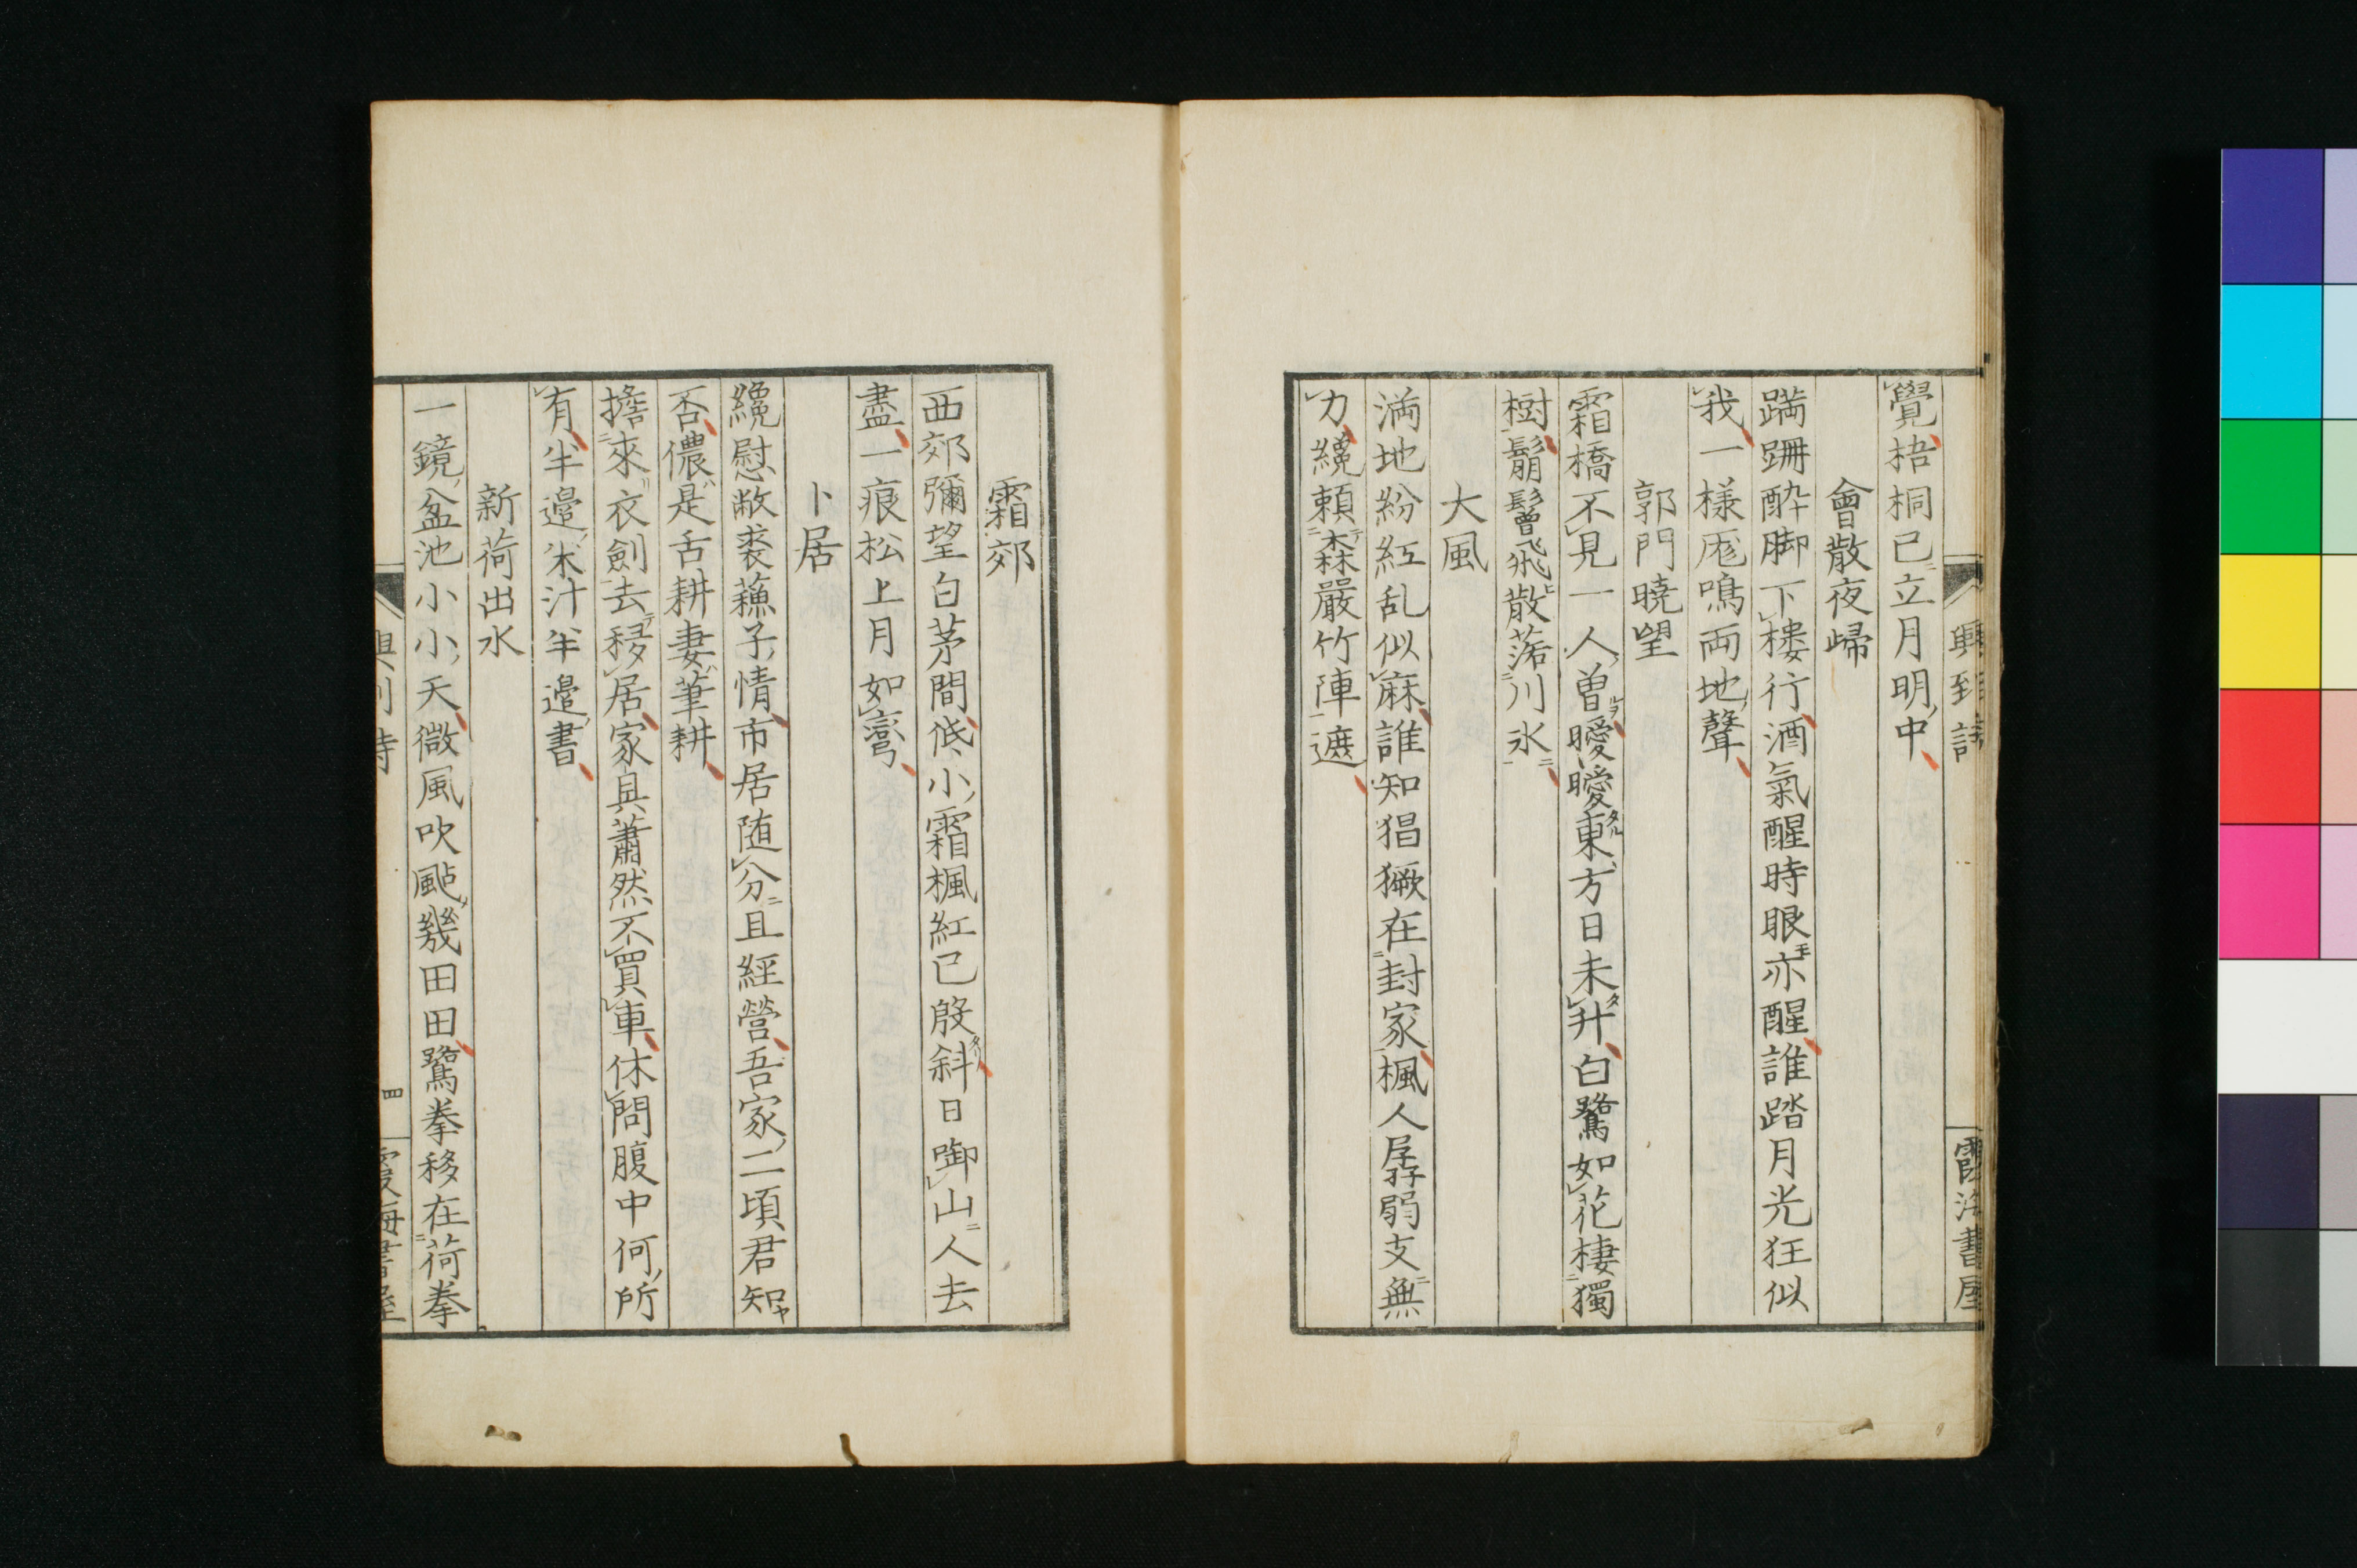 覺梧桐已立月明中
會散夜歸
蹣跚酔脚下樓行酒氣醒時眼亦醒誰踏月光狂似
我一様厖鳴両地聲
郭門暁望
霜橋不見一人曽曖曖東方日未升白鷺如花棲獨
樹鬅鬙飛散落川氷
大風
満地紛紅乱似麻誰知猖獗在封家楓人孱弱支無
力纔頼森嚴竹陣遮
霜郊
西郊彌望白茅間低小霜楓紅已殷斜日啣山人去
盡一痕松上月如彎
卜居
纔慰敝裘蘓子情市居随分且經營吾家二頃君知
否儂是舌耕妻筆耕
擔來衣劍去移居家具蕭然不買車休問腹中何所
有半邉米汁半邉書
新荷出水
一鏡盆池小小天微風吹颭幾田田鷺拳移在荷拳
四